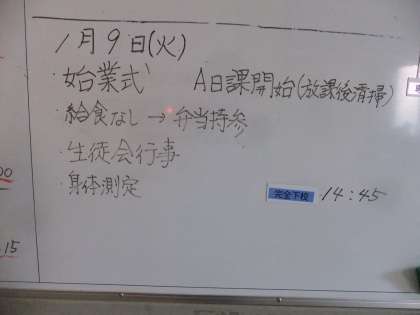 1月9日(火)
・始業式 A日課開始(放課後清掃)
・給食なし→弁当持参
・生徒会行事
・身体測定
完全下校 14:45
00
.15